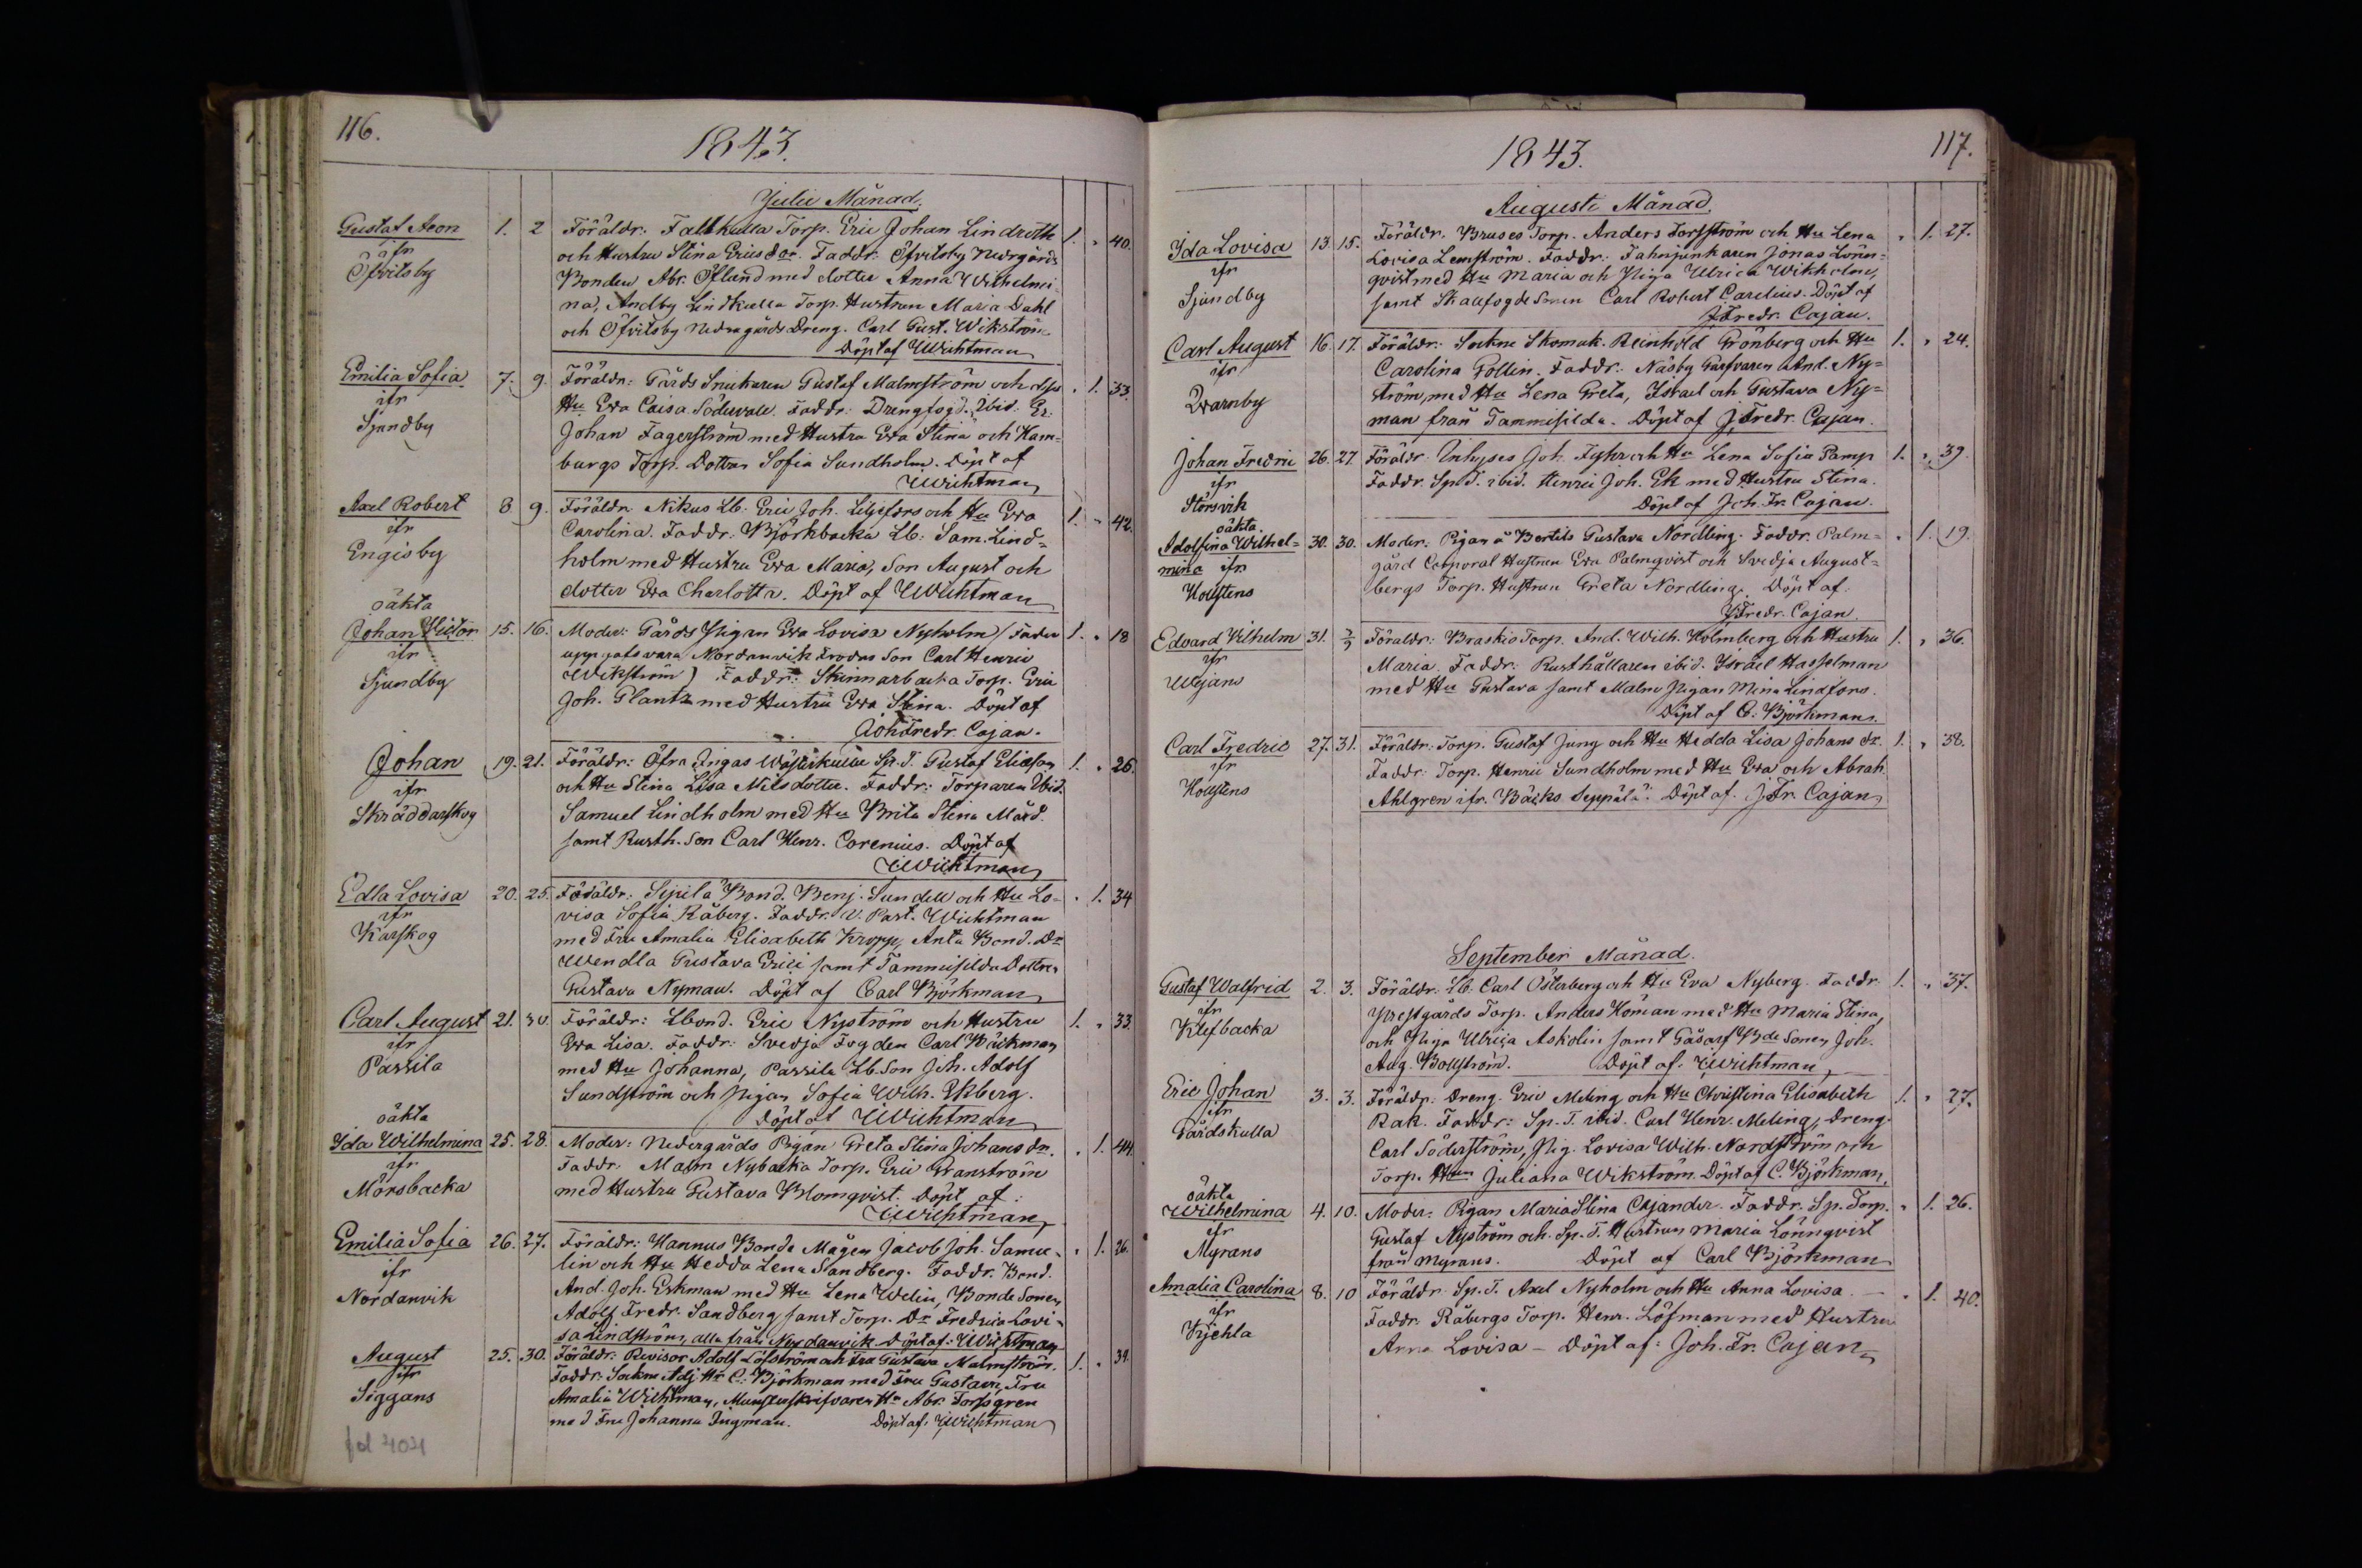 116.
1843.
Julii Månad.
Gustaf Aron 1. 2 Föräldr: Fallkulla Torp. Eric Johan Lindroth 1. " 40.
ifr och Hustru Stina Ericsdor. Faddr: Öfvitsby Nedrgårds
Öfvitsby Bonden Abr. Öfland med dotter Anna Wilhelmi-
na, Andby Lindkulla Torp. Hustrun Maria Dahl
och Öfvitsby Nedragårds Dreng. Carl Gust. Wikström.
Döpt af Wichtman
Emilia Sofia 7. 9. Föräldr: Gårds Snickaren Gustaf Malmström och dess " 1. 33.
ifr Hu Eva Caisa Södervall. Faddr: Drengfogd. Ibid: Er.
Sjundby Johan Fagerström med Hustru Eva Stina och Kam-
burgs Torp. Dottren Sofia Sundholm. Döpt af
Wichtman
Axel Robert 8 9. Föräldr. Nikus Lb. Eric Joh. Liljefors och Hu Eva 1. " 42.
ifr Carolina. Faddr: Björkbacka Lb: Sam. Lind-
Engisby holm med Hustru Eva Maria, Son August och
dotter Eva Charlotta. Döpt af Wichtman
oäkta
Johan Victor 15. 16. Moder: Gårds Pigan Eva Lovisa Nyholm (Fader 1. " 18
ifr uppgafs vara Nordanvik Enodas Son Carl Henric
Sjundby Wikström) Faddr: Skinnarbacka Torp. Eric
Joh. Glantz med Hustru Eva Stina. Döpt af
Joh Fredr. Cajan.
Johan 19. 21. Föräldr: Öfra Ingas Wästerkulla Sp. T. Gustaf Eliasson 1. " 26.
ifr och Hu Stina Lisa Milsdotter. Faddr: Torparen Ibid.
Skräddarskog Samuel Lindholm med Hu Brita Stina Mård.
samt Rusth. Son Carl Henr. Corenius. Döpt af
Wichtman
Edla Lovisa 20. 25. Föräldr. Sipilä Bond. Benj. Sundell och Hu Lo- " 1. 34
ifr visa Sofia Råberg. Faddr. V. Past. Wichtman
Karskog med Fru Amalia Elisabeth Kropp, Anta Bond. Dr
Wendla Gustava Erici samt Tammisilda Dottren
Gustava Nyman. Döpt af Carl Björkman
Carl August 21. 30. Föräldr: Lbond. Eric Nyström och Hustru 1. " 33.
ifr Eva Lisa. Faddr: Svedja Fogden Carl Bäckman
Passila med Hu Johanna, Passila Lb. Son Joh. Adolf
Sundström och Pigan Sofia Wilh. Ekberg.
Döpt af Wichtman
oäkta
Ida Wilhelmina 25. 28. Moder: Nedergårds Pigan Greta Stina Johans dr. " 1. 44
ifr Faddr. Malm Nybacka Torp. Eric Granström
Mörsbacka med Hustru Gustava Blomqvist. Döpt af:
Wichtman
Emilia Sofia 26. 27. Föräldr: Hannus Bonde Mågen Jacob Joh. Samu- " 1. 26.
ifr lin och Hu Hedda Lena Sandberg. Faddr. Bond.
Nordanvik And. Joh. Eskman med Hu Lena Welin, Bonde Sonen
Adolf Fredr. Sandberg samt Torp. Dr Fredrica Lovi-
sa Lindström, alla från Nordanvik. Döpt af. Wichtman
August 25. 30. Föräldr: Revisor Adolf Löfström och Fru Gustava Malmström. 1. " 31.
ifr Faddr: Sockne Adj. Hr C. Björkman med Fru Gustava, Fru
Siggans Amalia Wichtman, Munsterskrifvaren Hr Abr. Forssgren
med Fru Johanna Ingman. Döpt af: Wichtman
fol 404
117.
1843.
Augusti Månad.
Ida Lovisa 13. 15. Föräldr. Bruses Torp. Anders Forsström och Hu Lena " 1. 27.
ifr Lovisa Lemström. Faddr: Fahnjunkaren Jonas Lönn-
Sjundby qvist med Hu Maria och Piga Ulrica Wikholm,
samt Skallfogde Sonen Carl Robert Carelius. Döpt af
J Fredr. Cajan.
Carl August 16. 17. Föräldr: Sockne Skomak. Reinhold Grönberg och Hu 1. " 24.
ifr Carolina Gollin. Faddr: Näsby Garfvaren And. Ny-
Qvarnby ström, med Hu Lena Greta, Israel och Gustava Ny-
man från Tammisilda. Döpt af J. Fredr. Cajan.
Johan Fredric 26. 27. Föräldr. Inhyses Joh. Fyhr och Hu Lena Sofia Pamp 1. " 39.
ifr Faddr. Sp. T. ibid. Henric Joh. Ek med Hustru Stina.
Störsvik Döpt af Joh. Fr. Cajan.
oäkta
Adolfina Wilhel- 30. 30. Moder. Pigan å Bertils Gustava Nordling. Faddr. Palm- " 1. 19.
mina ifr gård Corporal Hustrun Eva Palmqvist och Svedja August-
Hollstens bergs Torp. Hustrun Greta Nordling. Döpt af.
J Fredr. Cajan.
Edvard Vilhelm 31. 3/9 Föräldr: Braskis Torp. And. Wilh. Holmberg och Hustru 1. " 36.
ifr Maria. Faddr: Rusthållaren ibid. Israel Hasselman
Wejans med Hu Gustava samt Malm Pigan Mina Lindfors.
Döpt af C. Björkman.
Carl Fredric 27. 31. Föräldr: Torp. Gustaf Jung och Hu Hedda Lisa Johans dr. 1. " 38.
ifr Faddr: Torp. Henric Sundholm med Hu Eva och Abrah.
Hollstens Ahlgren ifr. Bäcks Seppälä. Döpt af. J. Fr. Cajan
September Månad.
Gustaf Walfrid 2. 3. Föräldr. Lb. Carl Österberg och Hu Eva Nyberg. Faddr. 1. " 37.
ifr Prestgårds Torp. Anders Höman med Hu Maria Stina,
Klefbacka och Piga Ulrica Askolin samt Gåsarf Bde Sonen Joh.
Aug. Bollström. Döpt af. Wichtman
Eric Johan 3. 3. Föräldr: Dreng. Eric Meling och Hu Christina Elisabeth 1. " 27.
ifr Rak. Faddr: Sp. T. ibid. Carl Henr. Meling, Dreng.
Gårdskulla Carl Söderström, Pig. Lovisa Wilh. Nordström och
Torp. Hun Juliana Wikström. Döpt af C. Björkman,
oäkta
Wilhelmina 4. 10. Moder: Pigan Maria Stina Cajander. Faddr. Sp. Torp. " 1. 26.
ifr Gustaf Nyström och. Sp. T. Hustrun Maria Lönnqvist
Myrans från Myrans. Döpt af Carl Björkman
Amalia Carolina 8. 10 Föräldr. Sp. T. Axel Nyholm och Hu Anna Lovisa. " 1. 40.
ifr Faddr. Råbergs Torp. Henr. Löfman med Hustru
Kyehla Anna Lovisa – Döpt af: Joh. Fr. Cajan